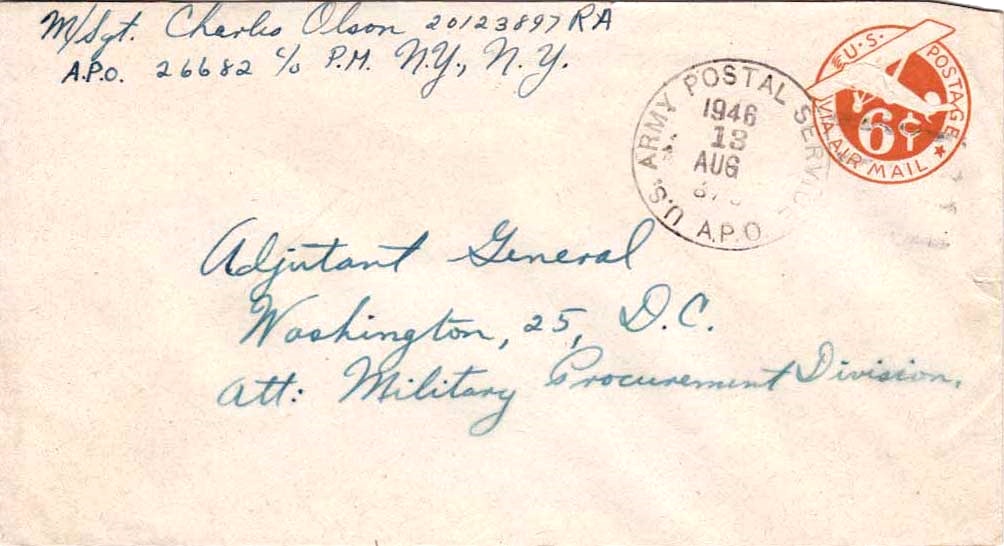 M/Sgt. Charles Olson 20123897 RA
A.P.O. 26682 c/o P.M. N.Y., N.Y.
U.S. POSTAGE
6¢
VIA AIR MAIL
U.S. ARMY POSTAL SERVICE
1946
13
AUG
A.P.O.
Adjutant General
Washington, 25, D.C.
Att: Military Procurement Division.